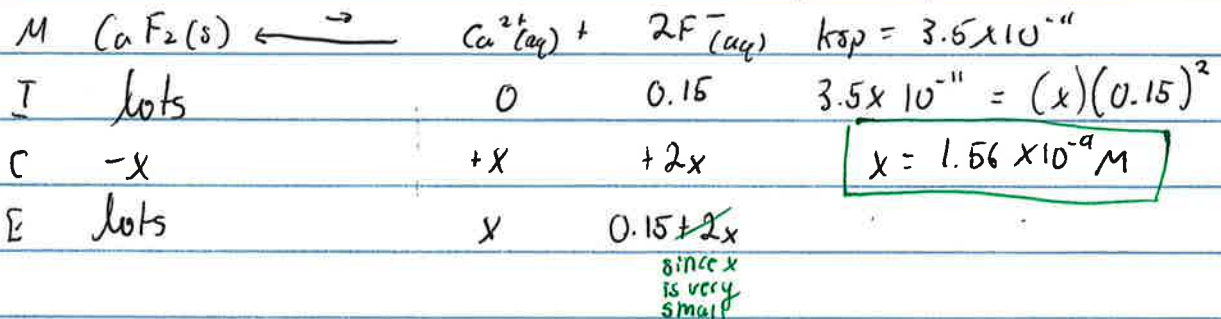 M CaF₂(s) ⟷ → Ca²⁺(aq) + 2F⁻(aq) ksp = 3.5x10⁻¹¹
I lots 0 0.15 3.5x 10⁻¹¹ = (x)(0.15)²
C -x +x +2x x = 1.56 x10⁻⁹ M
E lots x 0.15+2x
since x
is very
small